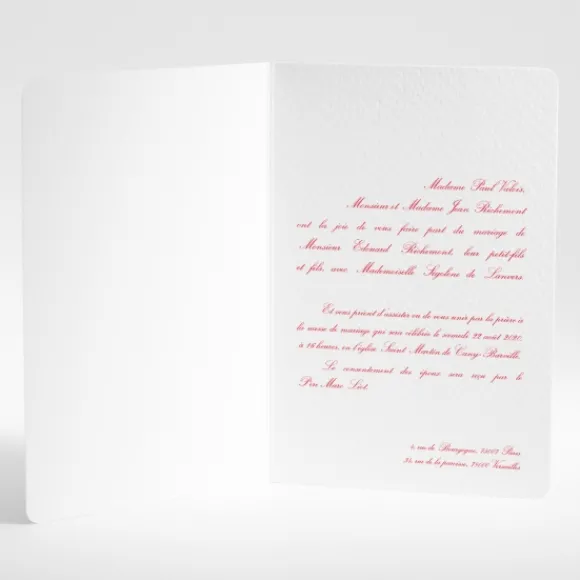 Madame Paul Valois,
Monsieur et Madame Jean Richemont
ont la joie de vous faire part du mariage de
Monsieur Edouard Richemont, leur petit-fils
et fils, avec Mademoiselle Ségolène de Lanvers
Et vous prient d'assister ou de vous unir par la prière à
la messe de mariage qui sera célébrée le samedi 22 août 2020,
à 16 heures, en l'église Saint Martin de Cany-Barville.
Le consentement des époux sera reçu par le
Père Marc Liot.
4, rue de Bourgogne, 75007 Paris
35, rue de la paroisse, 78000 Versailles